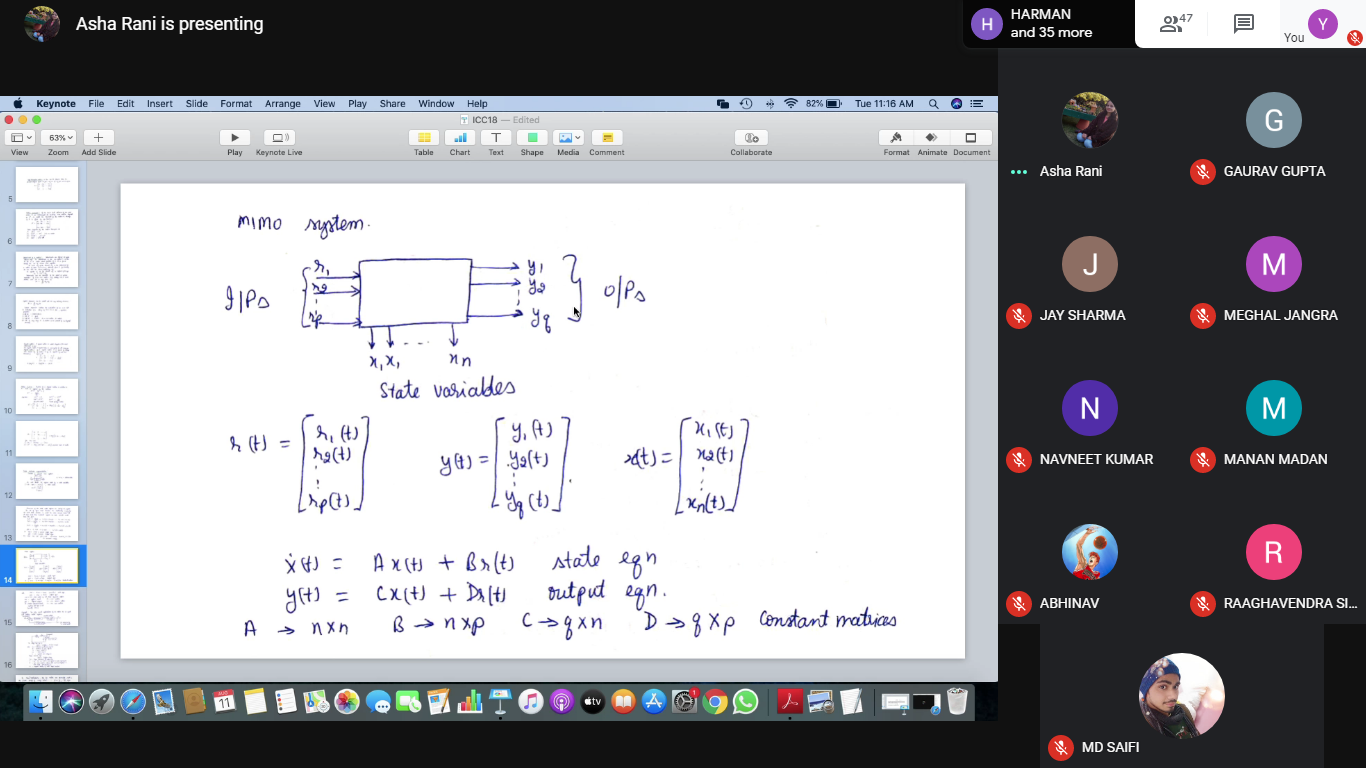 Asha Rani is presenting
H
HARMAN
and 35 more
47
You
Y
Keynote File Edit Insert Slide Format Arrange View Play Share Window Help
82% Tue 11:16 AM
ICC18 — Edited
63%
View Zoom Add Slide
Play Keynote Live
Table Chart Text Shape Media Comment
Collaborate
Format Animate Document
5
6
7
8
9
10
11
12
13
14
15
16
MIMO system.
I/Ps
r1
r2
rp
y1
y2
yq
O/Ps
x1 x1 - - - xn
State variables
r(t) = [r1(t) r2(t) ⋮ rp(t)]
y(t) = [y1(t) y2(t) ⋮ yq(t)]
x(t) = [x1(t) x2(t) ⋮ xn(t)]
ẋ(t) = Ax(t) + Br(t) state eqn
y(t) = Cx(t) + Dr(t) output eqn.
A → n×n B → n×p C → q×n D → q×p Constant matrices
AUG
11
tv
1
Asha Rani
G
GAURAV GUPTA
J
JAY SHARMA
M
MEGHAL JANGRA
N
NAVNEET KUMAR
M
MANAN MADAN
ABHINAV
R
RAAGHAVENDRA SI...
MD SAIFI